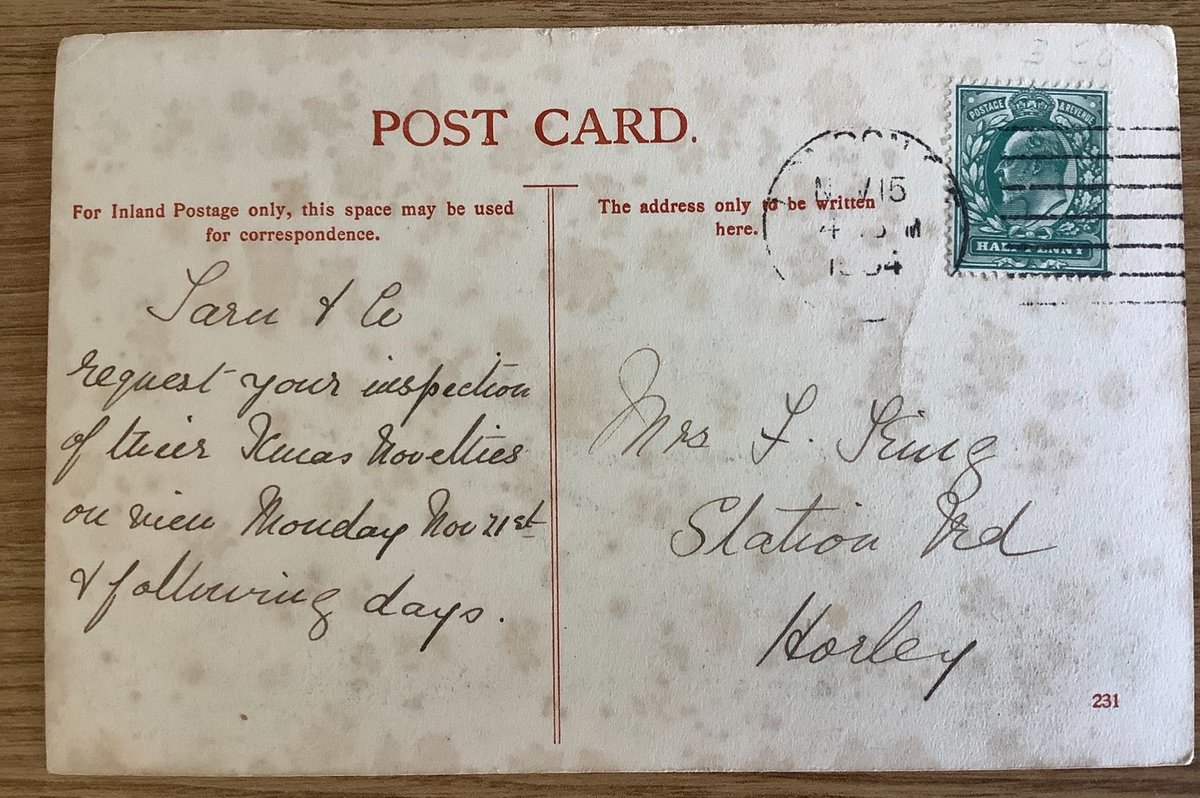 POST CARD.
For Inland Postage only, this space may be used
for correspondence.
The address only to be written
here.
POSTAGE & REVENUE
HALFPENNY
NOV 15
1904
& Co
request your inspection
of their Xmas Novelties
on view Monday Nov 21st
& following days.
Mrs F. King
Station Rd
Horley
231